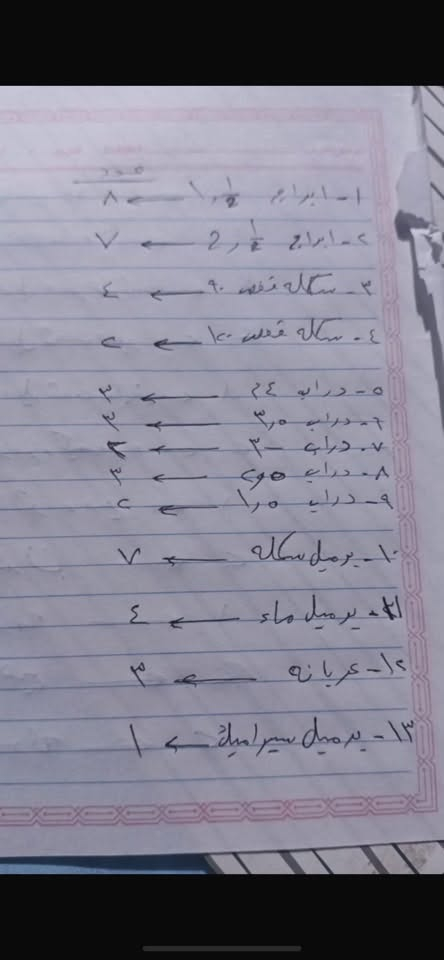 عدد
١- ابراج ½ ١, ← ٨
٢- ابراج ½ 2, ← ٧
٣- سكله قفص ٩٠ ← ٤
٤- سكله قفص ١٢٠ ← ٢
٥- دراب ٤م ← ٣
٦- دراب ٣,٥ ← ٣
٧- دراب ٣٠٠ ←
٨- دراب ٢,٥ ← ٣
٩- دراب ١,٥ ← ٢
١٠- برميل سكله ← ٧
١١- برميل ماء ← ٤
١٢- عربانه ← ٣
١٣- برميل سيراميك ← ١